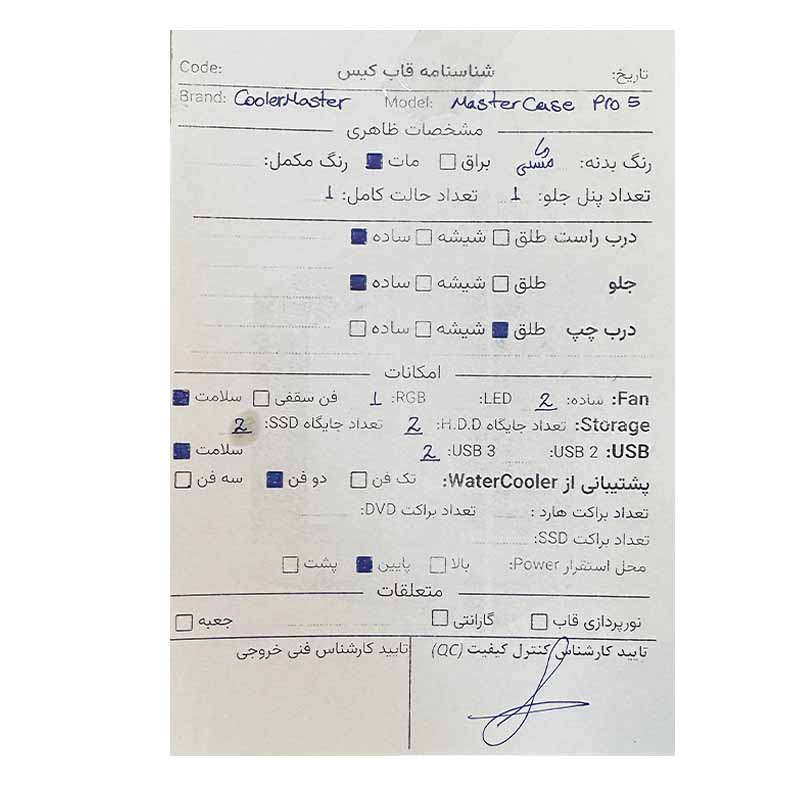 تاریخ: شناسنامه قاب کیس Code:
Brand: CoolerMaster Model: MasterCase Pro 5
مشخصات ظاهری
رنگ بدنه: مشکی براق مات رنگ مکمل:
تعداد پنل جلو: 1 تعداد حالت کامل: 1
درب راست طلق شیشه ساده
جلو طلق شیشه ساده
درب چپ طلق شیشه ساده
امکانات
Fan: ساده: 2 LED: RGB: 1 فن سقفی سلامت
Storage: تعداد جایگاه H.D.D: 2 تعداد جایگاه SSD: 2
USB: USB 2: USB 3: 2 سلامت
پشتیبانی از WaterCooler: تک فن دو فن سه فن
تعداد براکت هارد: تعداد براکت DVD:
تعداد براکت SSD:
محل استقرار Power: بالا پایین پشت
متعلقات
نورپردازی قاب گارانتی جعبه
تایید کارشناس کنترل کیفیت (QC) تایید کارشناس فنی خروجی